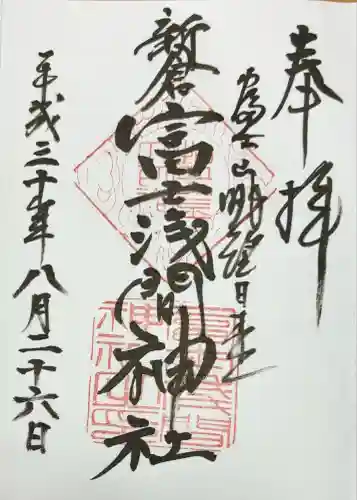 奉拝
富士山
新倉富士浅間神社
平成三十年八月二十六日